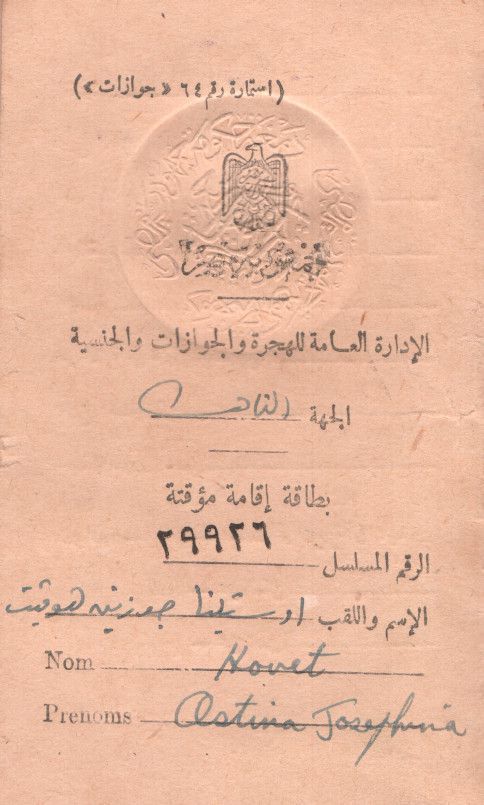 (استمارة رقم ٦٤ «جوازات»)
الإدارة العامة للهجرة والجوازات والجنسية
الجهة
بطاقة إقامة مؤقتة
الرقم المسلسل ٢٩٩٢٦
الإسم واللقب اوستينا جوزفينه هوڤيت
Nom Hovet
Prenoms Ostina Josephina